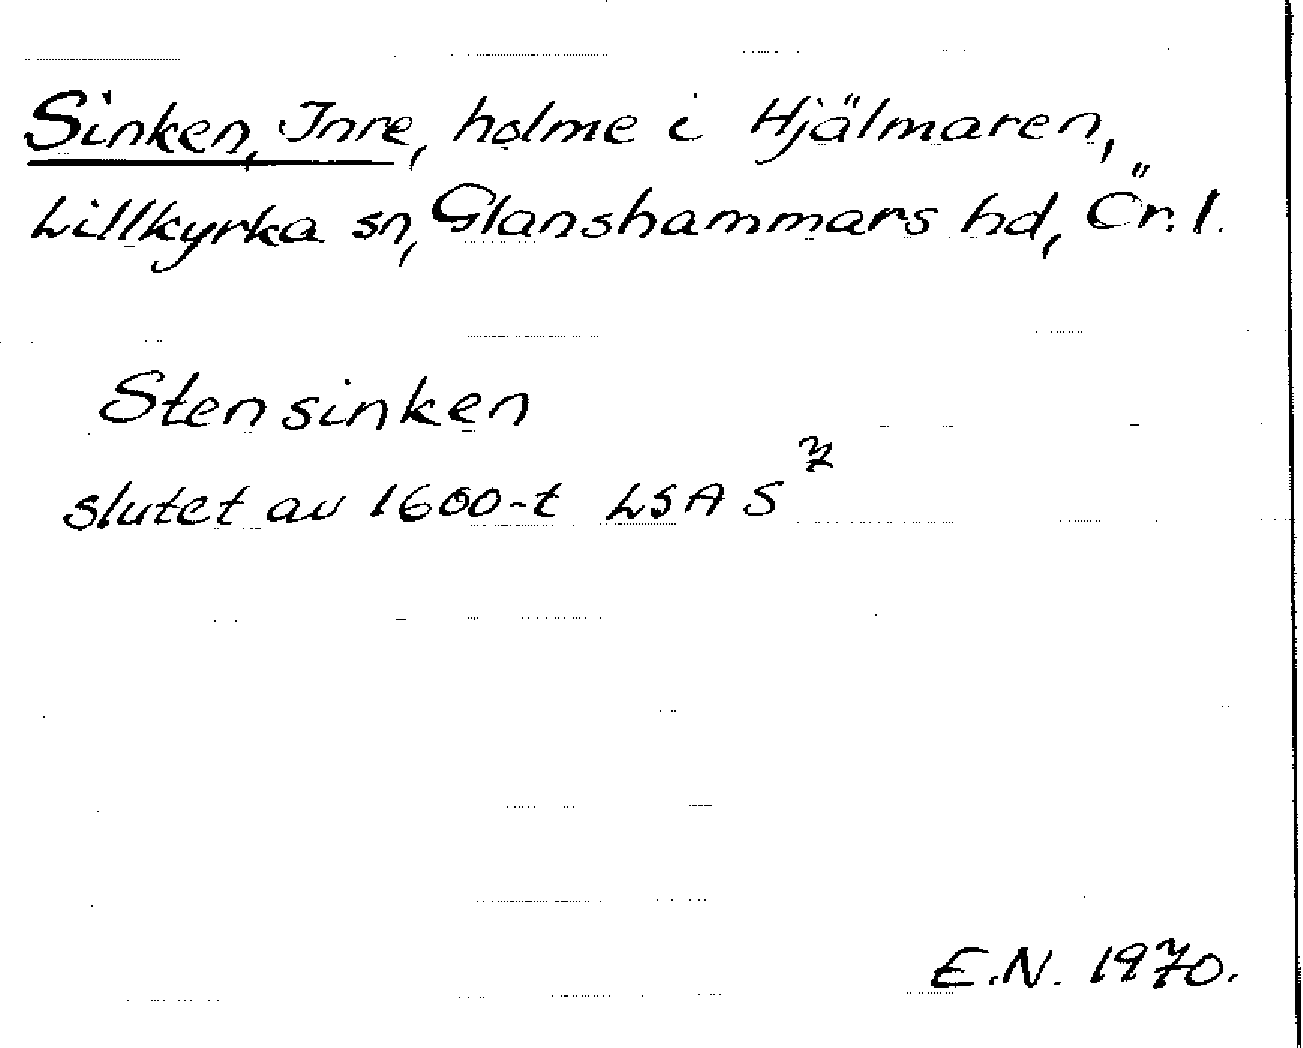 Sinken, Inre, holme i Hjälmaren,
Lillkyrka sn, Glanshammars hd, Ör. l.
Stensinken
slutet av 1600-t LSA S⁷
E.N. 1970.